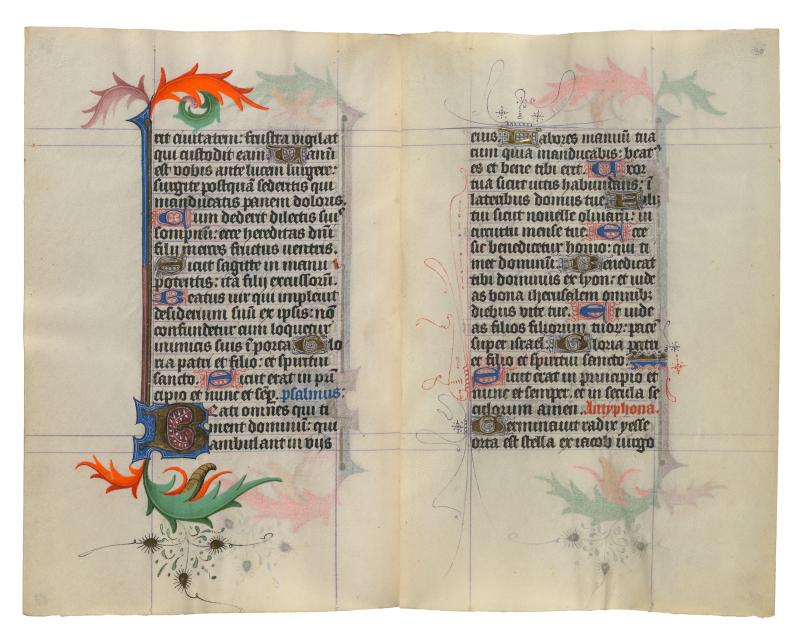 rit ciuitatem: frustra vigilat
qui custodit eam Uanū
est vobis ante lucem surgere:
surgite postquā sederitis qui
manducatis panem doloris.
Cum dederit dilectis suis
sompnū: ecce hereditas dn̄i
filij merces fructus uentris.
Sicut sagitte in manu
potentis: ita filij excussorū.
Beatus uir qui impleuit
desiderium suū ex ipsis: nō
confundetur cum loquetur
inimicis suis ī porta Glo
ria patri et filio: et spiritui
sancto. Sicut erat in prī
cipio et nunc et sēp. psalmus:
Beati omnes qui ti
ment dominū: qui
ambulant in viis
30
eius. Labores manuū tua
rum quia manducabis: beat9
es et bene tibi erit. Uxor
tua sicut uitis habundans: ī
lateribus domus tue. Filij
tui sicut nouelle oliuarū: in
circuitu mense tue. Ecce
sic benedicetur homo: qui ti
met dominū. Benedicat
tibi dominus ex syon: et uide
as bona iherusalem omnibꝫ
diebus vite tue. Et uide
as filios filiorum tuoꝝ: pacē
super israel. Gloria patri
et filio et spiritui sancto.
Sicut erat in principio et
nunc et semper. et in secula se
culorum amen. Antyphona.
Germinauit radix yesse
orta est stella ex iacob uirgo